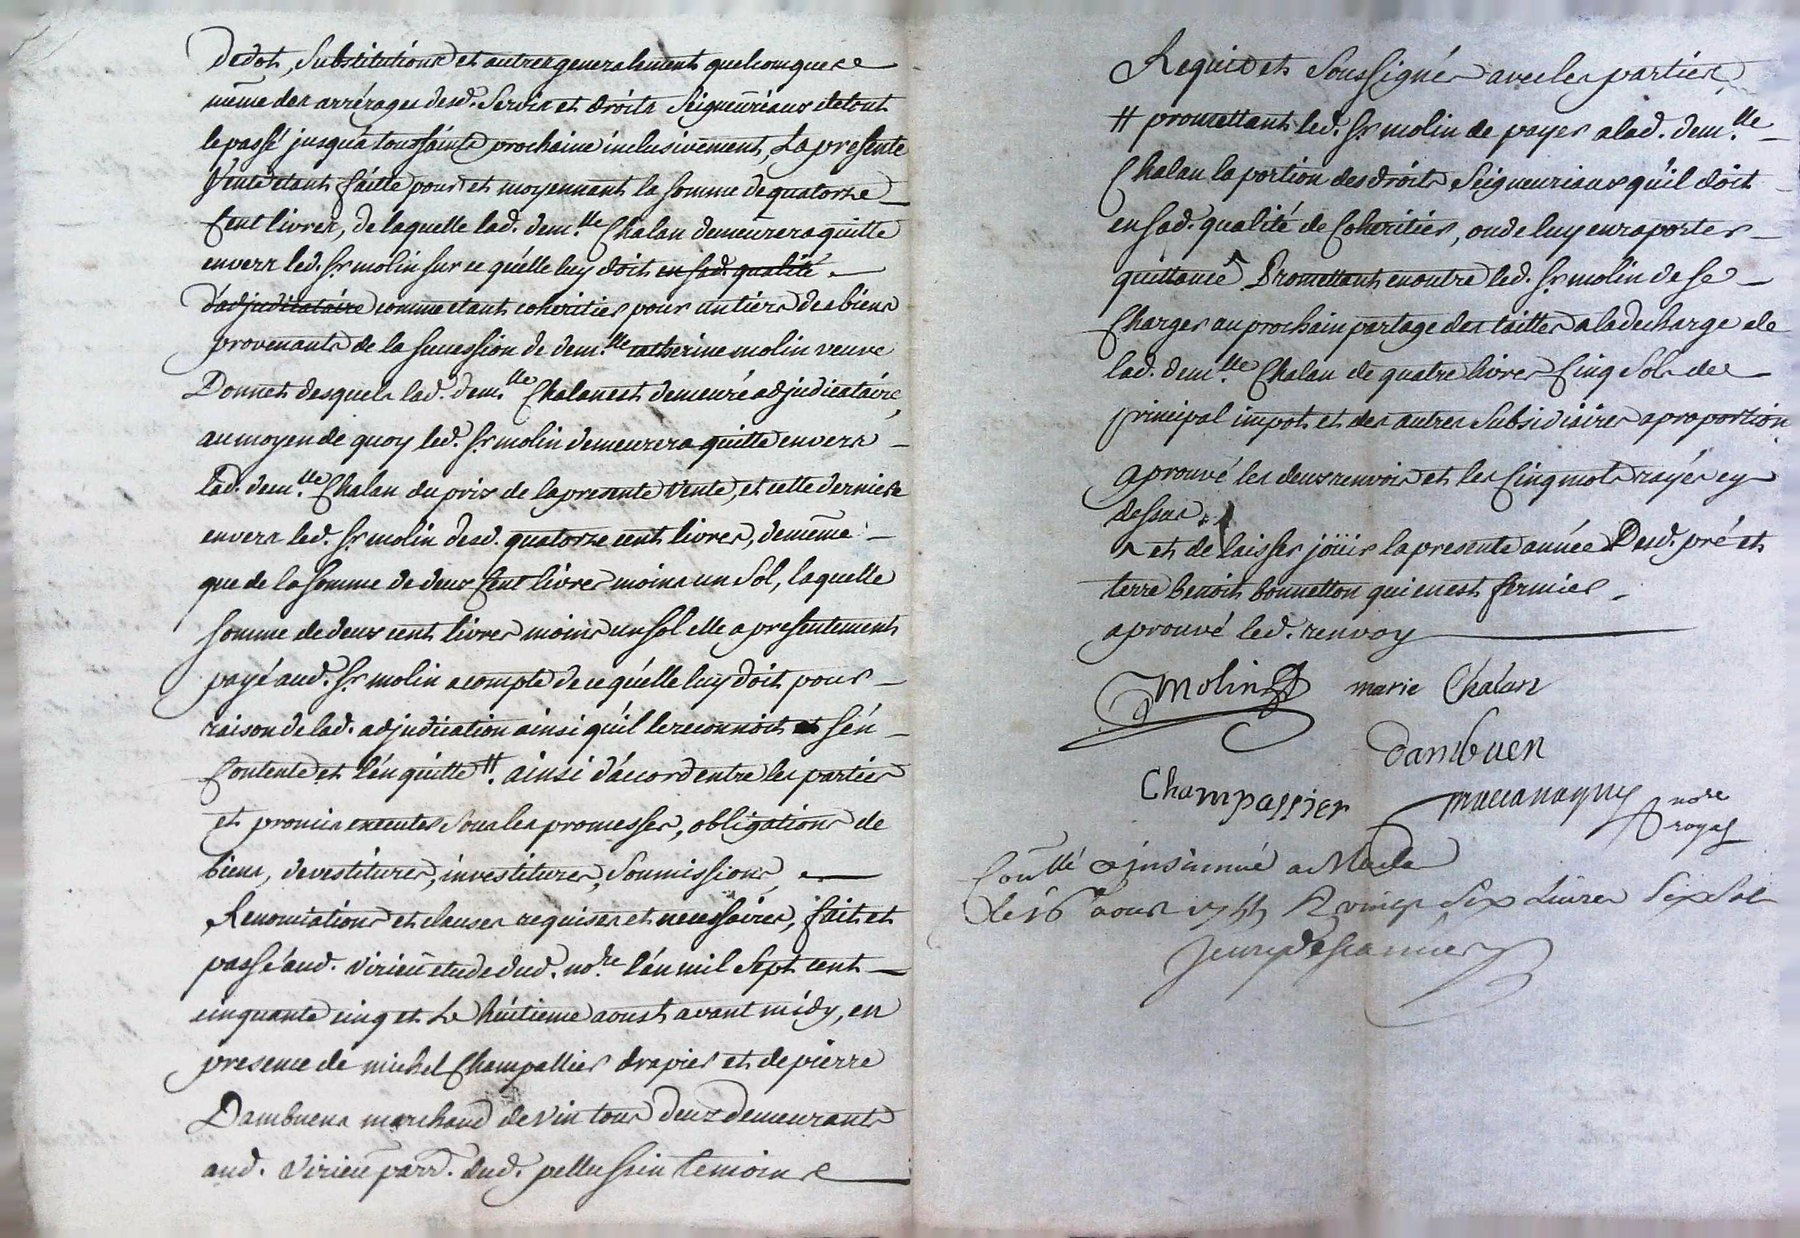 de dot, Substitutions et autres generalement quelconques
même des arrérages desd. Servis et droits Seigneuriaux de tout
le passé jusqu'a toussaints prochaine inclusivement, La presente
Vente étant faitte pour et moyennant la somme de quatorze
Cent livres, de laquelle lad. dem.lle Chalan demeurera quitte
envers led. Sr. molin sur ce qu'elle luy doit en sad. qualité
d'adjudicataire comme etant coheritier pour un tiers des biens
provenants de la succession de dem.lle catherine molin veuve
Donnet desquels lad. dem.lle Chalan est demeuré adjudicataire,
au moyen de quoy led. Sr. molin demeurera quitte envers
Lad. dem.lle Chalan du prix de la presente vente, et cette derniere
envers led. Sr. molin desd. quatorze cent livres, de même
que de la somme de deux Cent livres moins un Sol, laquelle
somme de deux cent livres moins un sol elle a presentement
payé aud. Sr. molin acompte de ce qu'elle luy doit pour
raison de lad. adjudication ainsi qu'il le reconnoit et s'en
Contente et l'en quitte #. ainsi d'accord entre les parties
et promis executer sous les promesses, obligations de
biens, devestitures, investitures, Soumissions,
Renonciations et clauses requises et necessaires, fait et
passé aud. Virieu etude dud. no.re l'an mil Sept cent
cinquante cinq et Le huitieme aoust avant midy, en
presence de michel Champallier drapier et de pierre
Dambuens marchand de vin tous deux demeurants
aud. Virieu parr. dud. pellussin temoins
Requis et Soussignés avec les parties,
# promettant led. Sr. molin de payer a lad. dem.lle
Chalan la portion des droits Seigneuriaux qu'il doit
en sad. qualité de Coheritier, ou de luy en raporter
quittance ^ Promettant en outre led. Sr. molin de se
Charger au prochain partage des tailles a la decharge de
lad. dem.lle Chalan de quatre livres Cinq Sols de
principal impot et des autres Subsidiaires a proportion
aprouvé les deux renvois et les Cinq mots rayés cy
dessus.
^ et de laisser joüir la presente année Desd. pré et
terre benoit bonnetton qui en est fermier.
aprouvé led. renvoy
Molin marie Chalan
Dambuen
Champassier
no.re
royal
Con.llé & insinué a
le 16 aoust 1755 R vingt Six Livres Six Sols